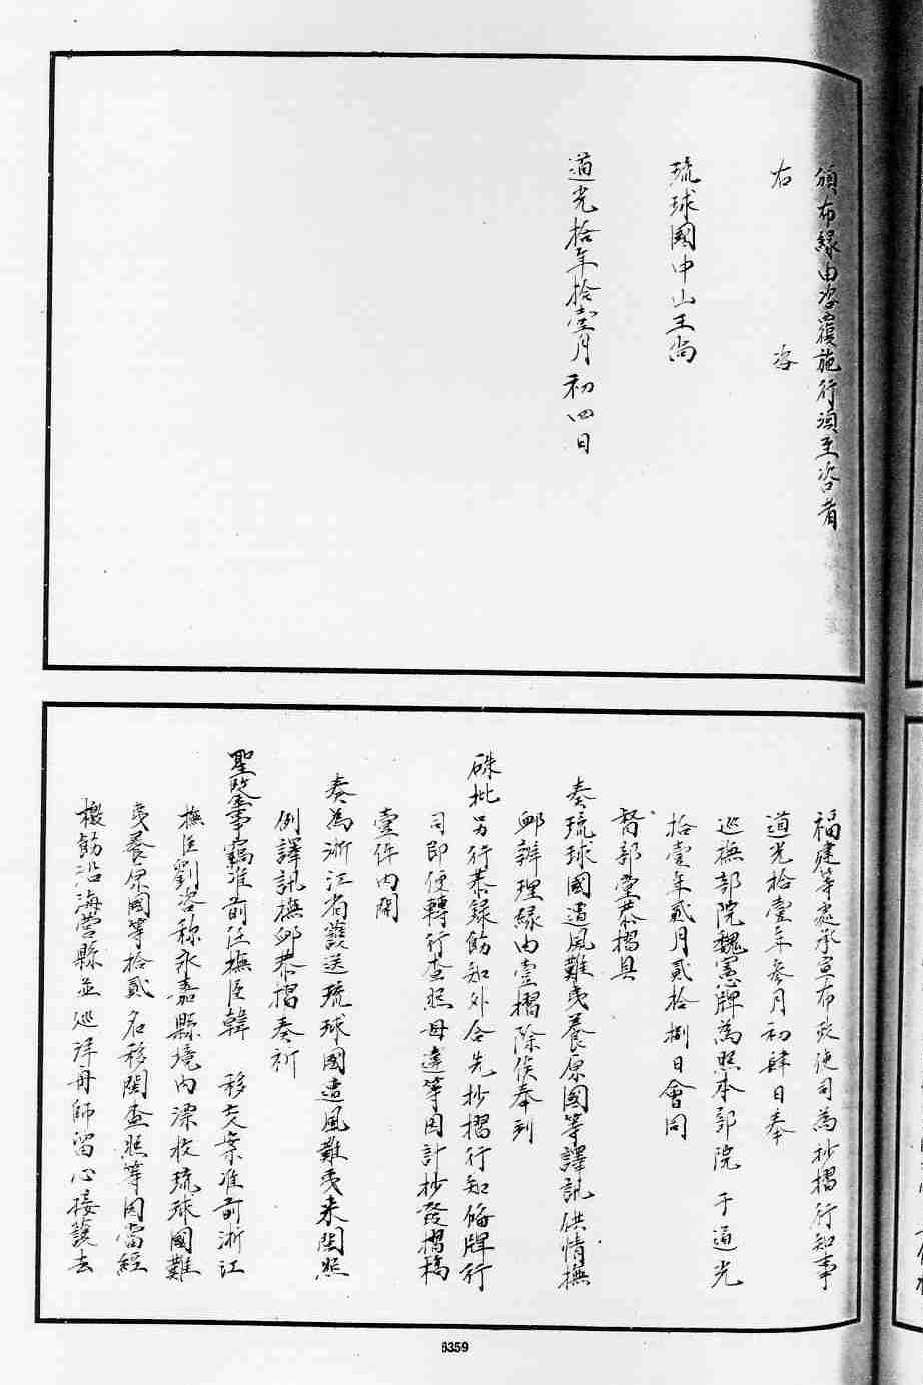 頒布緣由咨覆施行須至咨者
右　咨
琉球國中山王尚
道光拾年拾壹月初四日
福建等處承宣布政使司為抄摺行知事
道光拾壹年叁月初肆日奉
巡撫部院魏憲牌為照本部院于道光
拾壹年貳月貳拾捌日會同
督部堂恭摺具
奏琉球國遭風難夷養原國等譯訊供情撫
卹辦理緣由壹摺除俟奉到
硃批另行恭錄飭知外合先抄摺行知備牌行
司即便轉行查照毋違等因計抄發摺稿
壹件內開
奏為浙江省護送琉球國遭風難夷来閩照
例譯訊撫卹恭摺奏祈
聖鑒事竊准前任撫臣韓　移交案准前浙江
撫臣劉咨称永嘉縣境內漂收琉球國難
夷養原國等拾貳名移閩查照等因當經
檄飭沿海營縣並巡洋舟師留心接護去
6359